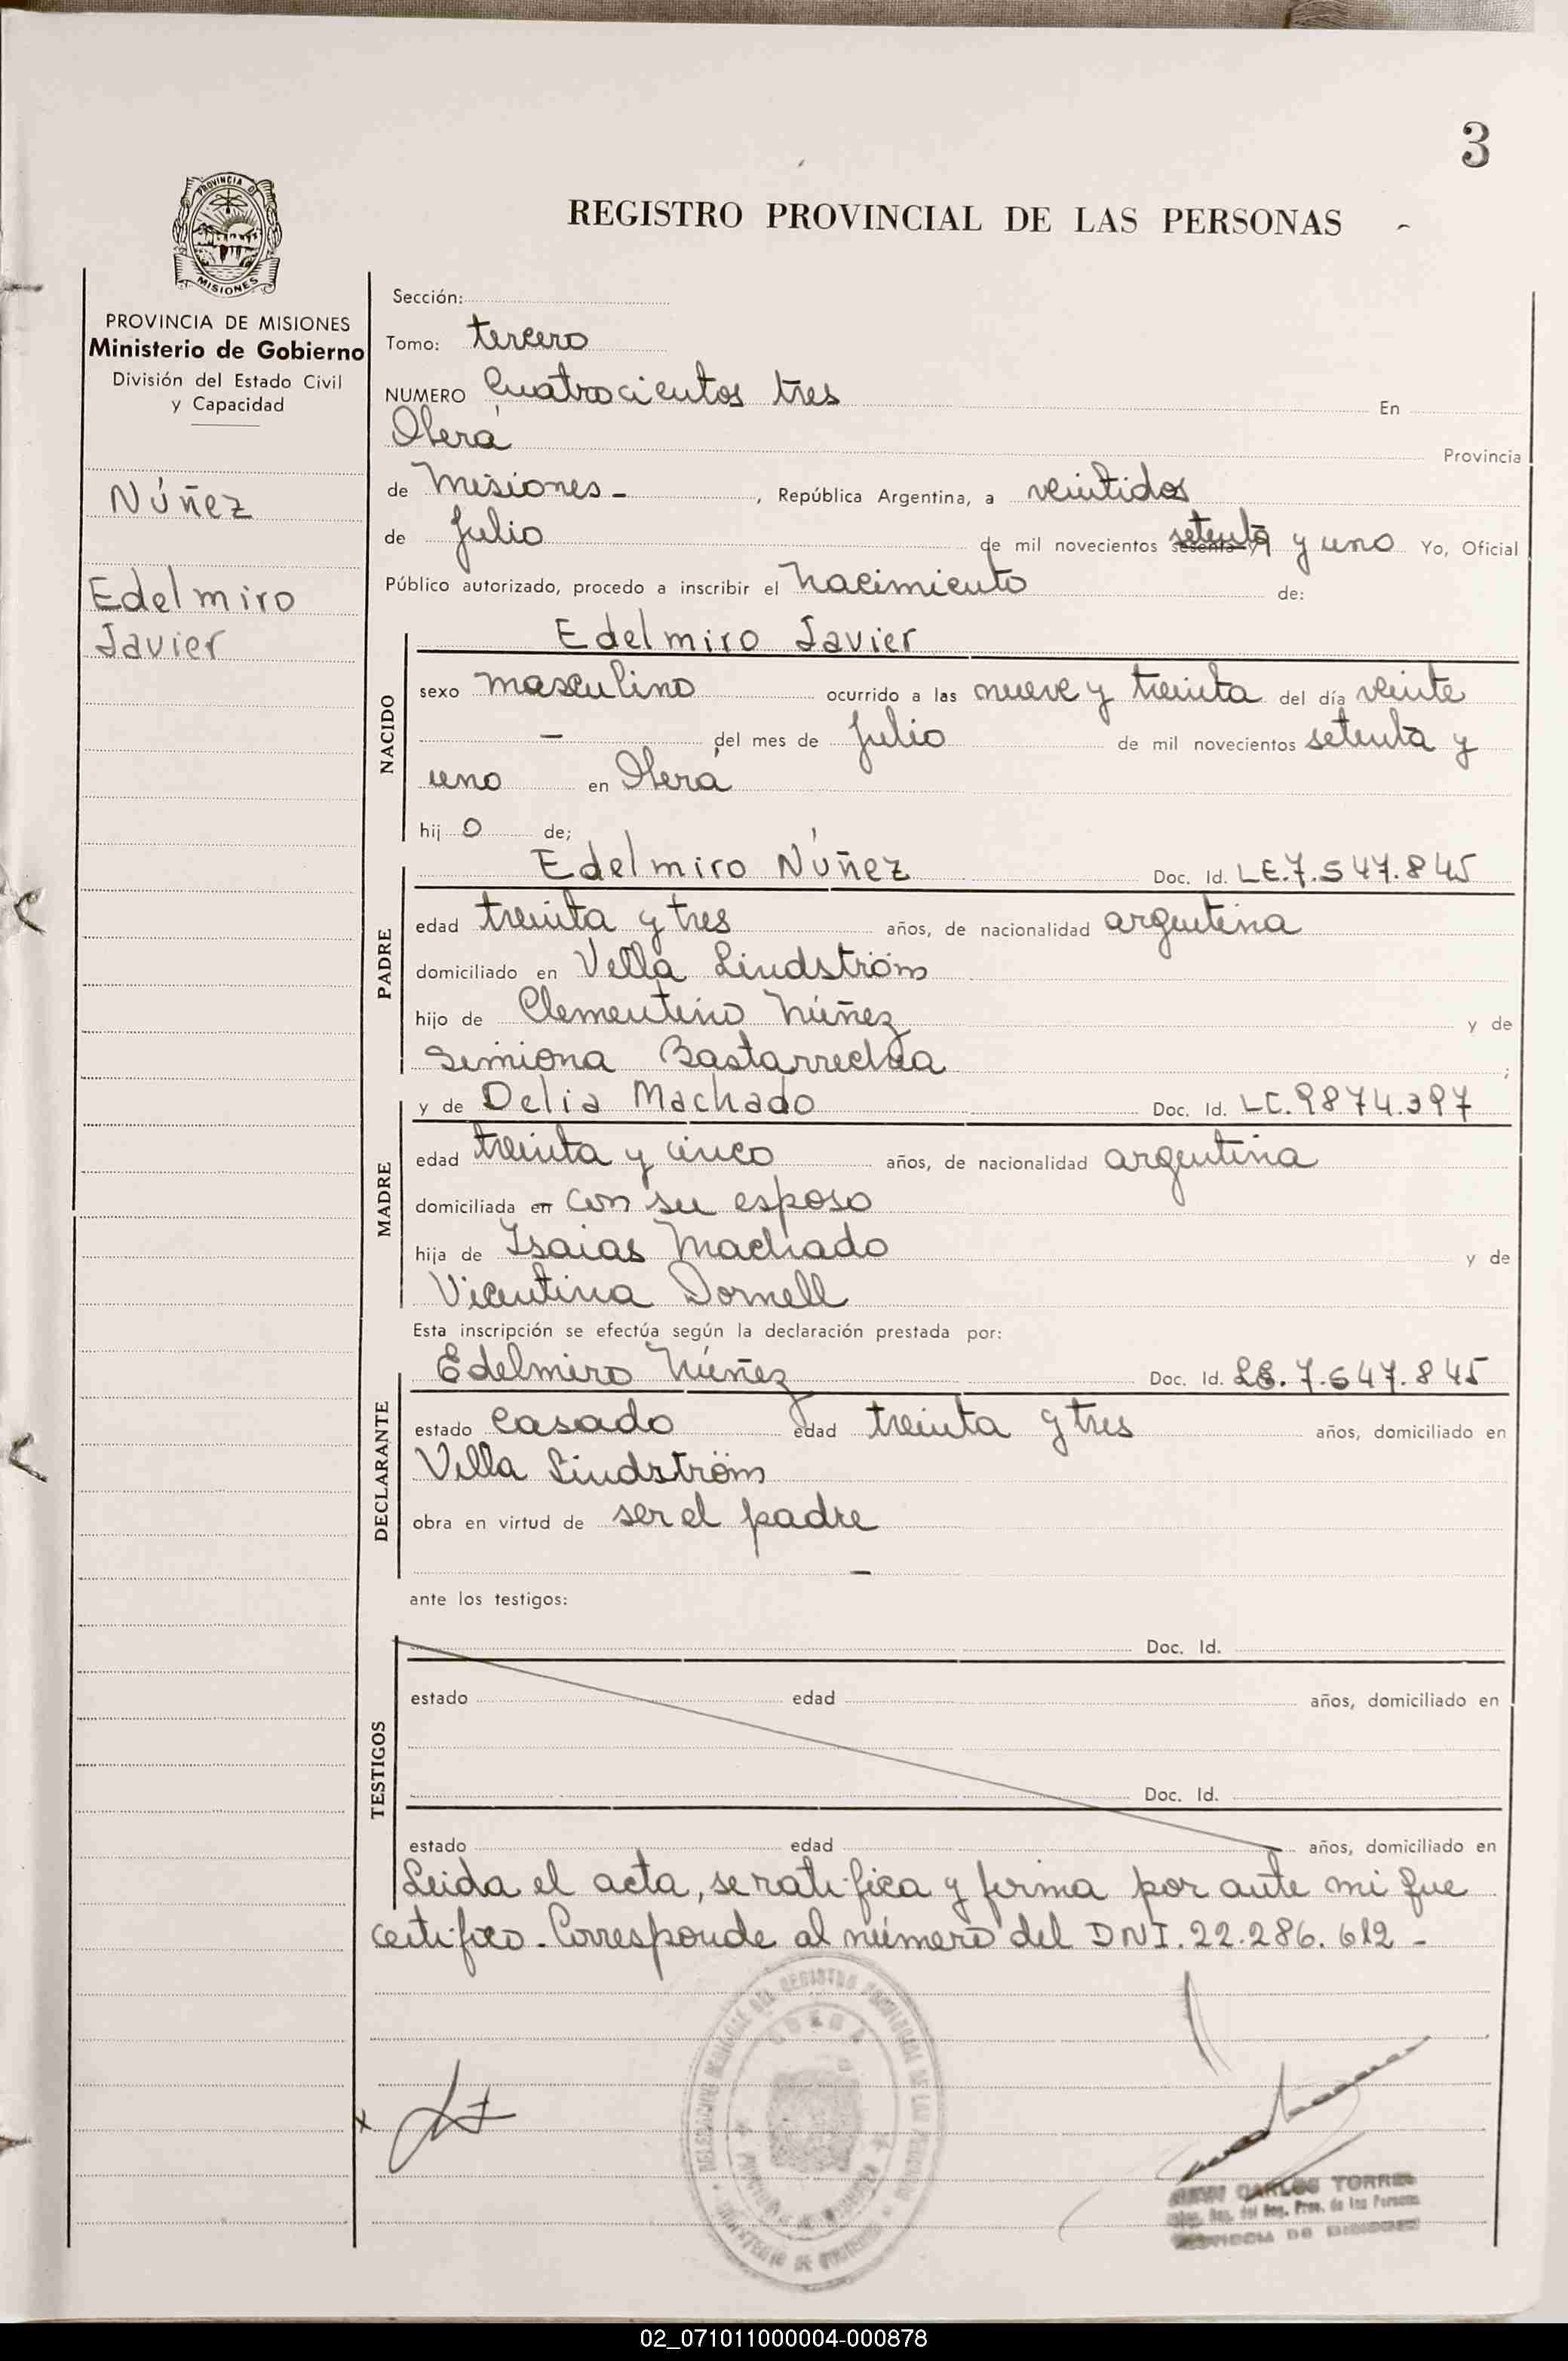 3
REGISTRO PROVINCIAL DE LAS PERSONAS
PROVINCIA DE MISIONES
PROVINCIA DE MISIONES
Ministerio de Gobierno
División del Estado Civil
y Capacidad
Núñez
Edelmiro
Javier
Sección:
Tomo: tercero
NUMERO Cuatrocientos tres En
Oberá Provincia
de Misiones - , República Argentina, a veintidos
de Julio de mil novecientos sesenta y setenta y uno Yo, Oficial
Público autorizado, procedo a inscribir el nacimiento de:
Edelmiro Javier
NACIDO
sexo masculino ocurrido a las nueve y treinta del día veinte
- del mes de Julio de mil novecientos setenta y
uno en Oberá
hij o de;
Edelmiro Núñez Doc. Id. LE.7.547.845
PADRE
edad treinta y tres años, de nacionalidad argentina
domiciliado en Villa Lindström
hijo de Clementino Núñez y de
Simiona Bastarrechea ;
y de Delia Machado Doc. Id. LC.9874.397
MADRE
edad treinta y cinco años, de nacionalidad argentina
domiciliada en con su esposo
hija de Isaias Machado y de
Vicentina Dornell
Esta inscripción se efectúa según la declaración prestada por:
Edelmiro Núñez Doc. Id. LE.7.547.845
DECLARANTE
estado casado edad treinta y tres años, domiciliado en
Villa Lindström
obra en virtud de ser el padre
-
ante los testigos:
TESTIGOS
Doc. Id.
estado edad años, domiciliado en
Doc. Id.
estado edad años, domiciliado en
Leida el acta, se ratifica y firma por ante mi que
certifico. Corresponde al número del DNI. 22.286.612 -
CARLOS TORRES
Reg. Prov. de las Personas
PROVINCIA DE MISIONES
02_071011000004-000878